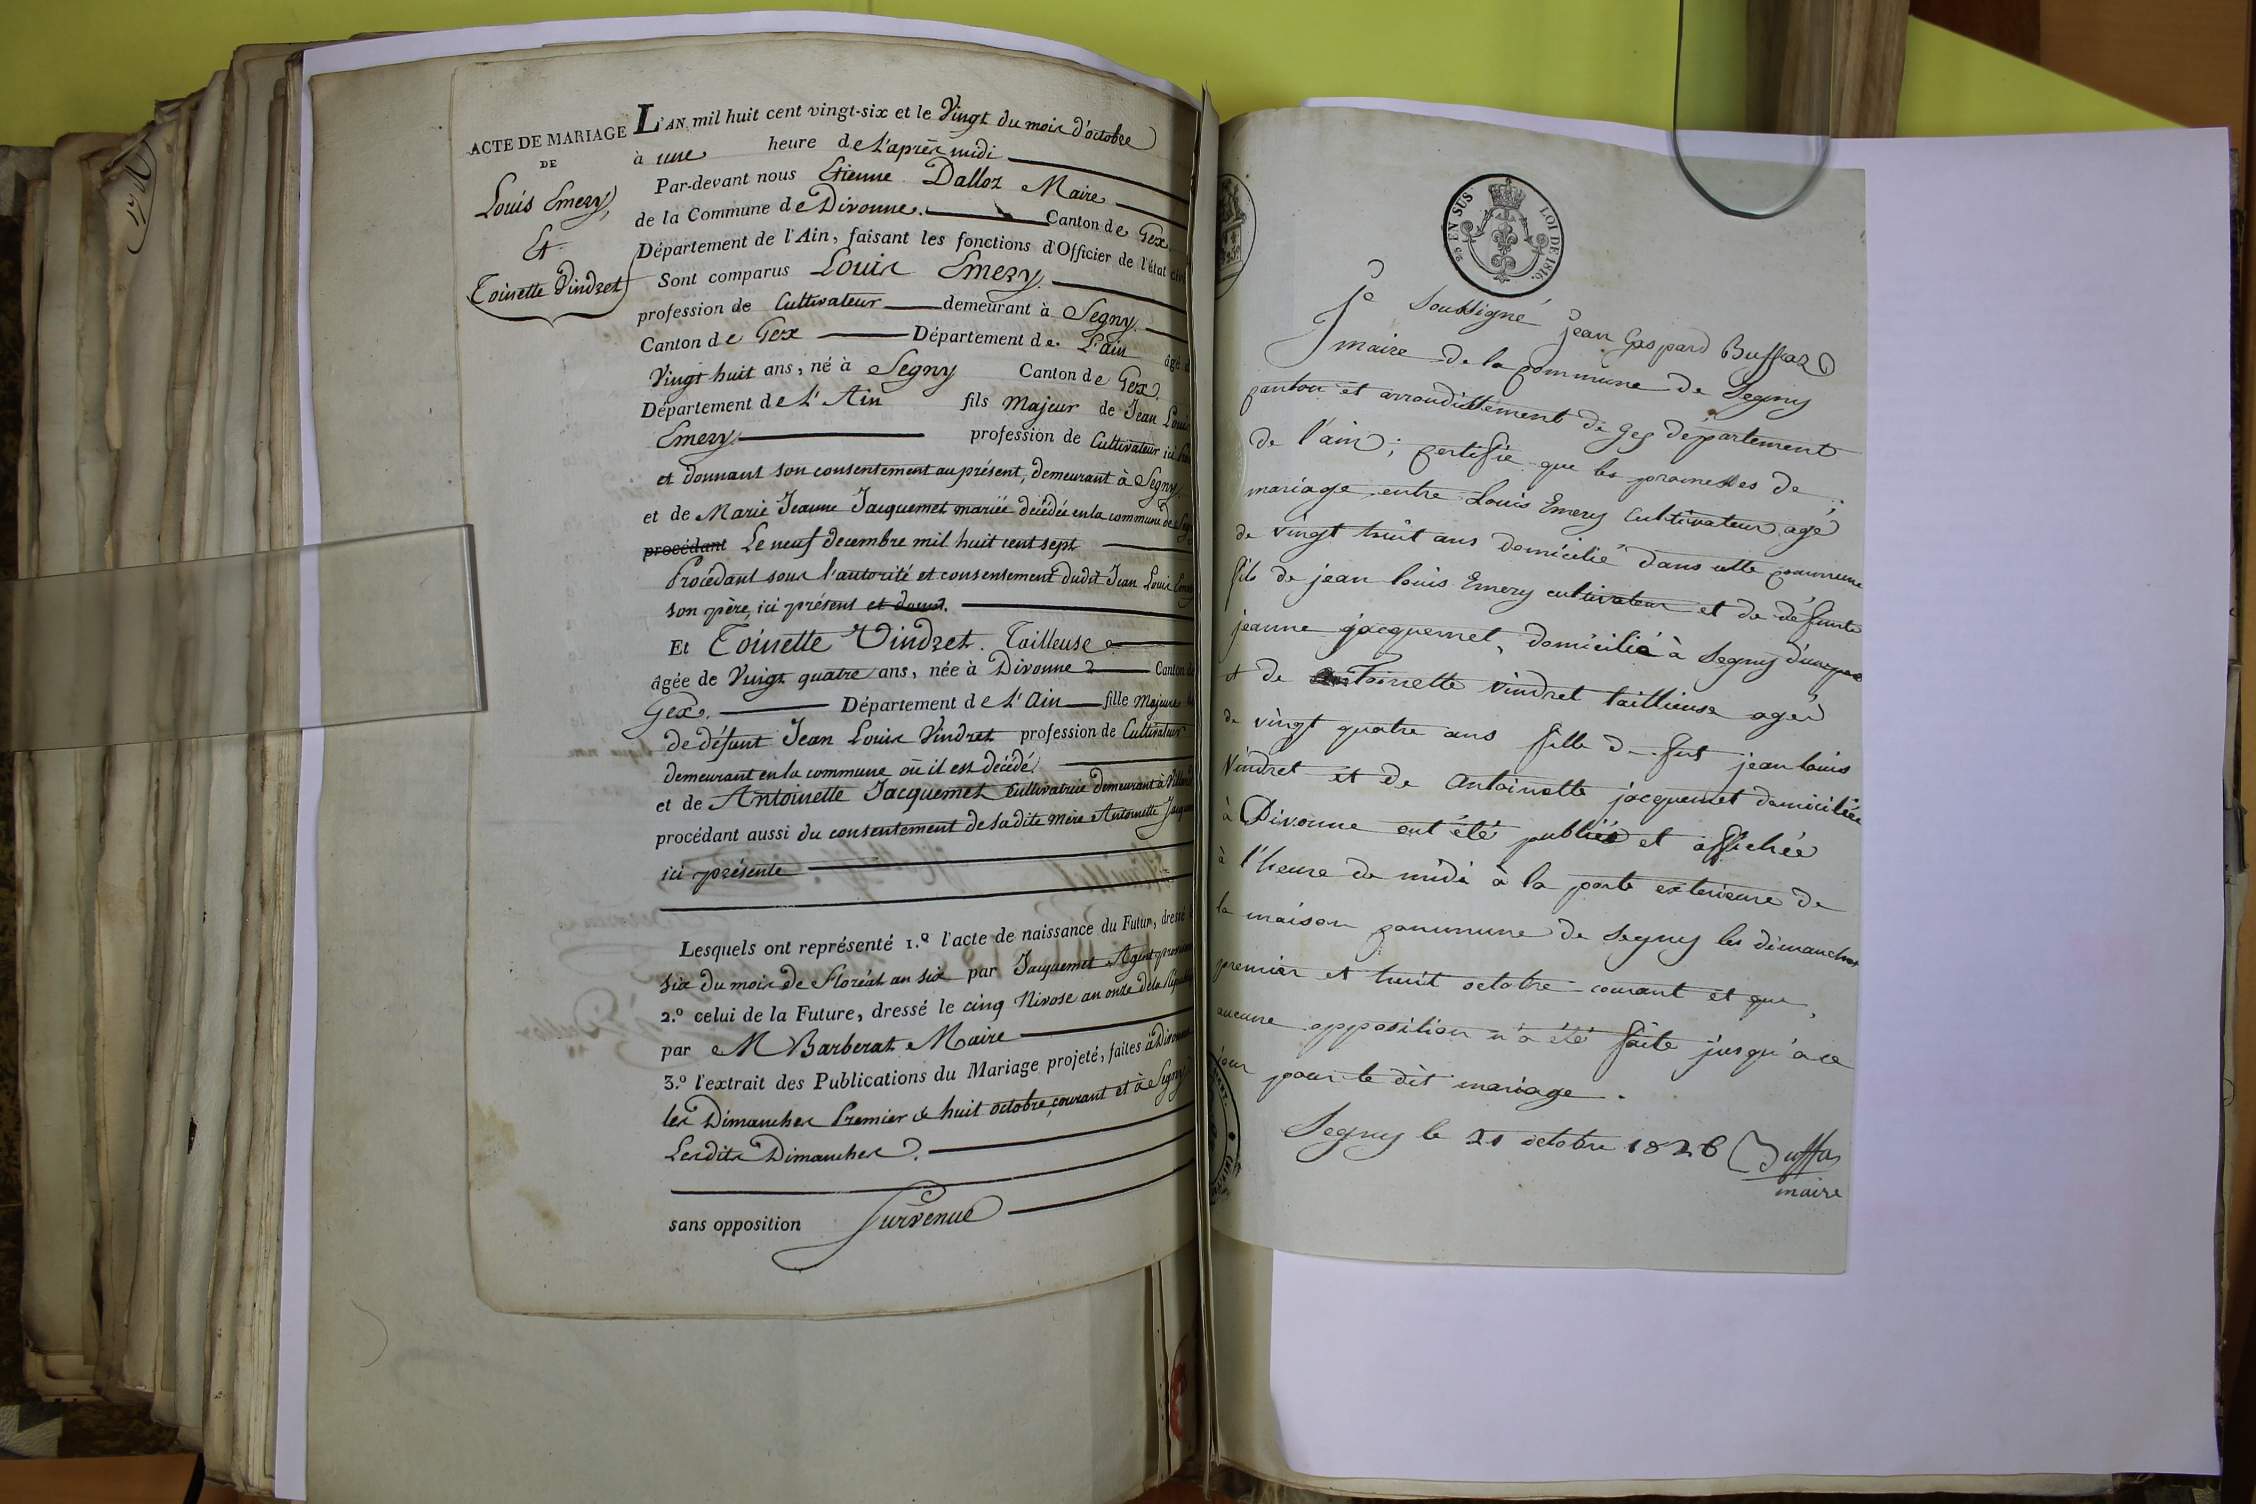 ACTE DE MARIAGE
DE
Louis Emery,
&
Toinette Vindret
L'AN mil huit cent vingt-six et le Vingt du mois d'octobre
à une heure de L'après midi
Par-devant nous Etienne Dalloz Maire
de la Commune de Divonne. Canton de Gex
Département de l'Ain, faisant les fonctions d'Officier de l'état
Sont comparus Louis Emery.
profession de Cultivateur demeurant à Segny.
Canton de Gex Département de L'ain âgé
Vingt huit ans, né à Segny Canton de Gex.
Département de L'Ain fils Majeur de Jean Louis
Emery profession de Cultivateur ici
et donnant son consentement au présent, demeurant à Segny.
et de Marie Jeanne Jacquemet mariée décédée en la commune de
procédant Le neuf decembre mil huit cent sept
Procédant sous l'autorité et consentement dudit Jean Louis
son père, ici présent et
Et Toinette Vindret. Tailleuse
âgée de Vingt quatre ans, née à Divonne Canton
Gex. Département de L'Ain fille Majeure
de défunt Jean Louis Vindret profession de Cultivateur
demeurant en la commune où il est décédé
et de Antoinette Jacquemet Cultivatrice demeurant à
procédant aussi du consentement de sa dite mère Antoinette
ici présente
Lesquels ont représenté 1.º l'acte de naissance du Futur, dressé
six du mois de Floréal an six par Jacquemet Agent
2.º celui de la Future, dressé le cinq Nivose an onze de la
par M Barberat Maire
3.º l'extrait des Publications du Mariage projeté, faites à Divonne
les Dimanches Premier & huit octobre courant et à Segny
Lesdits Dimanches.
sans opposition Survenue
EN SUS
LOI DE 1816.
Je soussigné jean Gaspard Buffaz
maire de la commune de Segny
canton et arrondissement de gex département
de l'ain; certifie que les promesses de
mariage entre Louis Emery cultivateur agé
de vingt huit ans domicilié dans cette commune
fils de jean louis Emery cultivateur et de défunte
jeanne jacquemet, domicilié à Segny d'une part
et de Toinette vindret taillieuse ageé
de vingt quatre ans fille de fut jean louis
Vindret et de antoinette jacquemet domiciliée
à Divonne ont été publiés et affichée
à l'heure de midi à la porte exterieure de
la maison commune de Segny les dimanches
premier et huit octobre courant et que
aucune opposition n'a été faite jusqu'à ce
jour pour le dit mariage.
Segny le 21 octobre 1826 Buffaz
maire